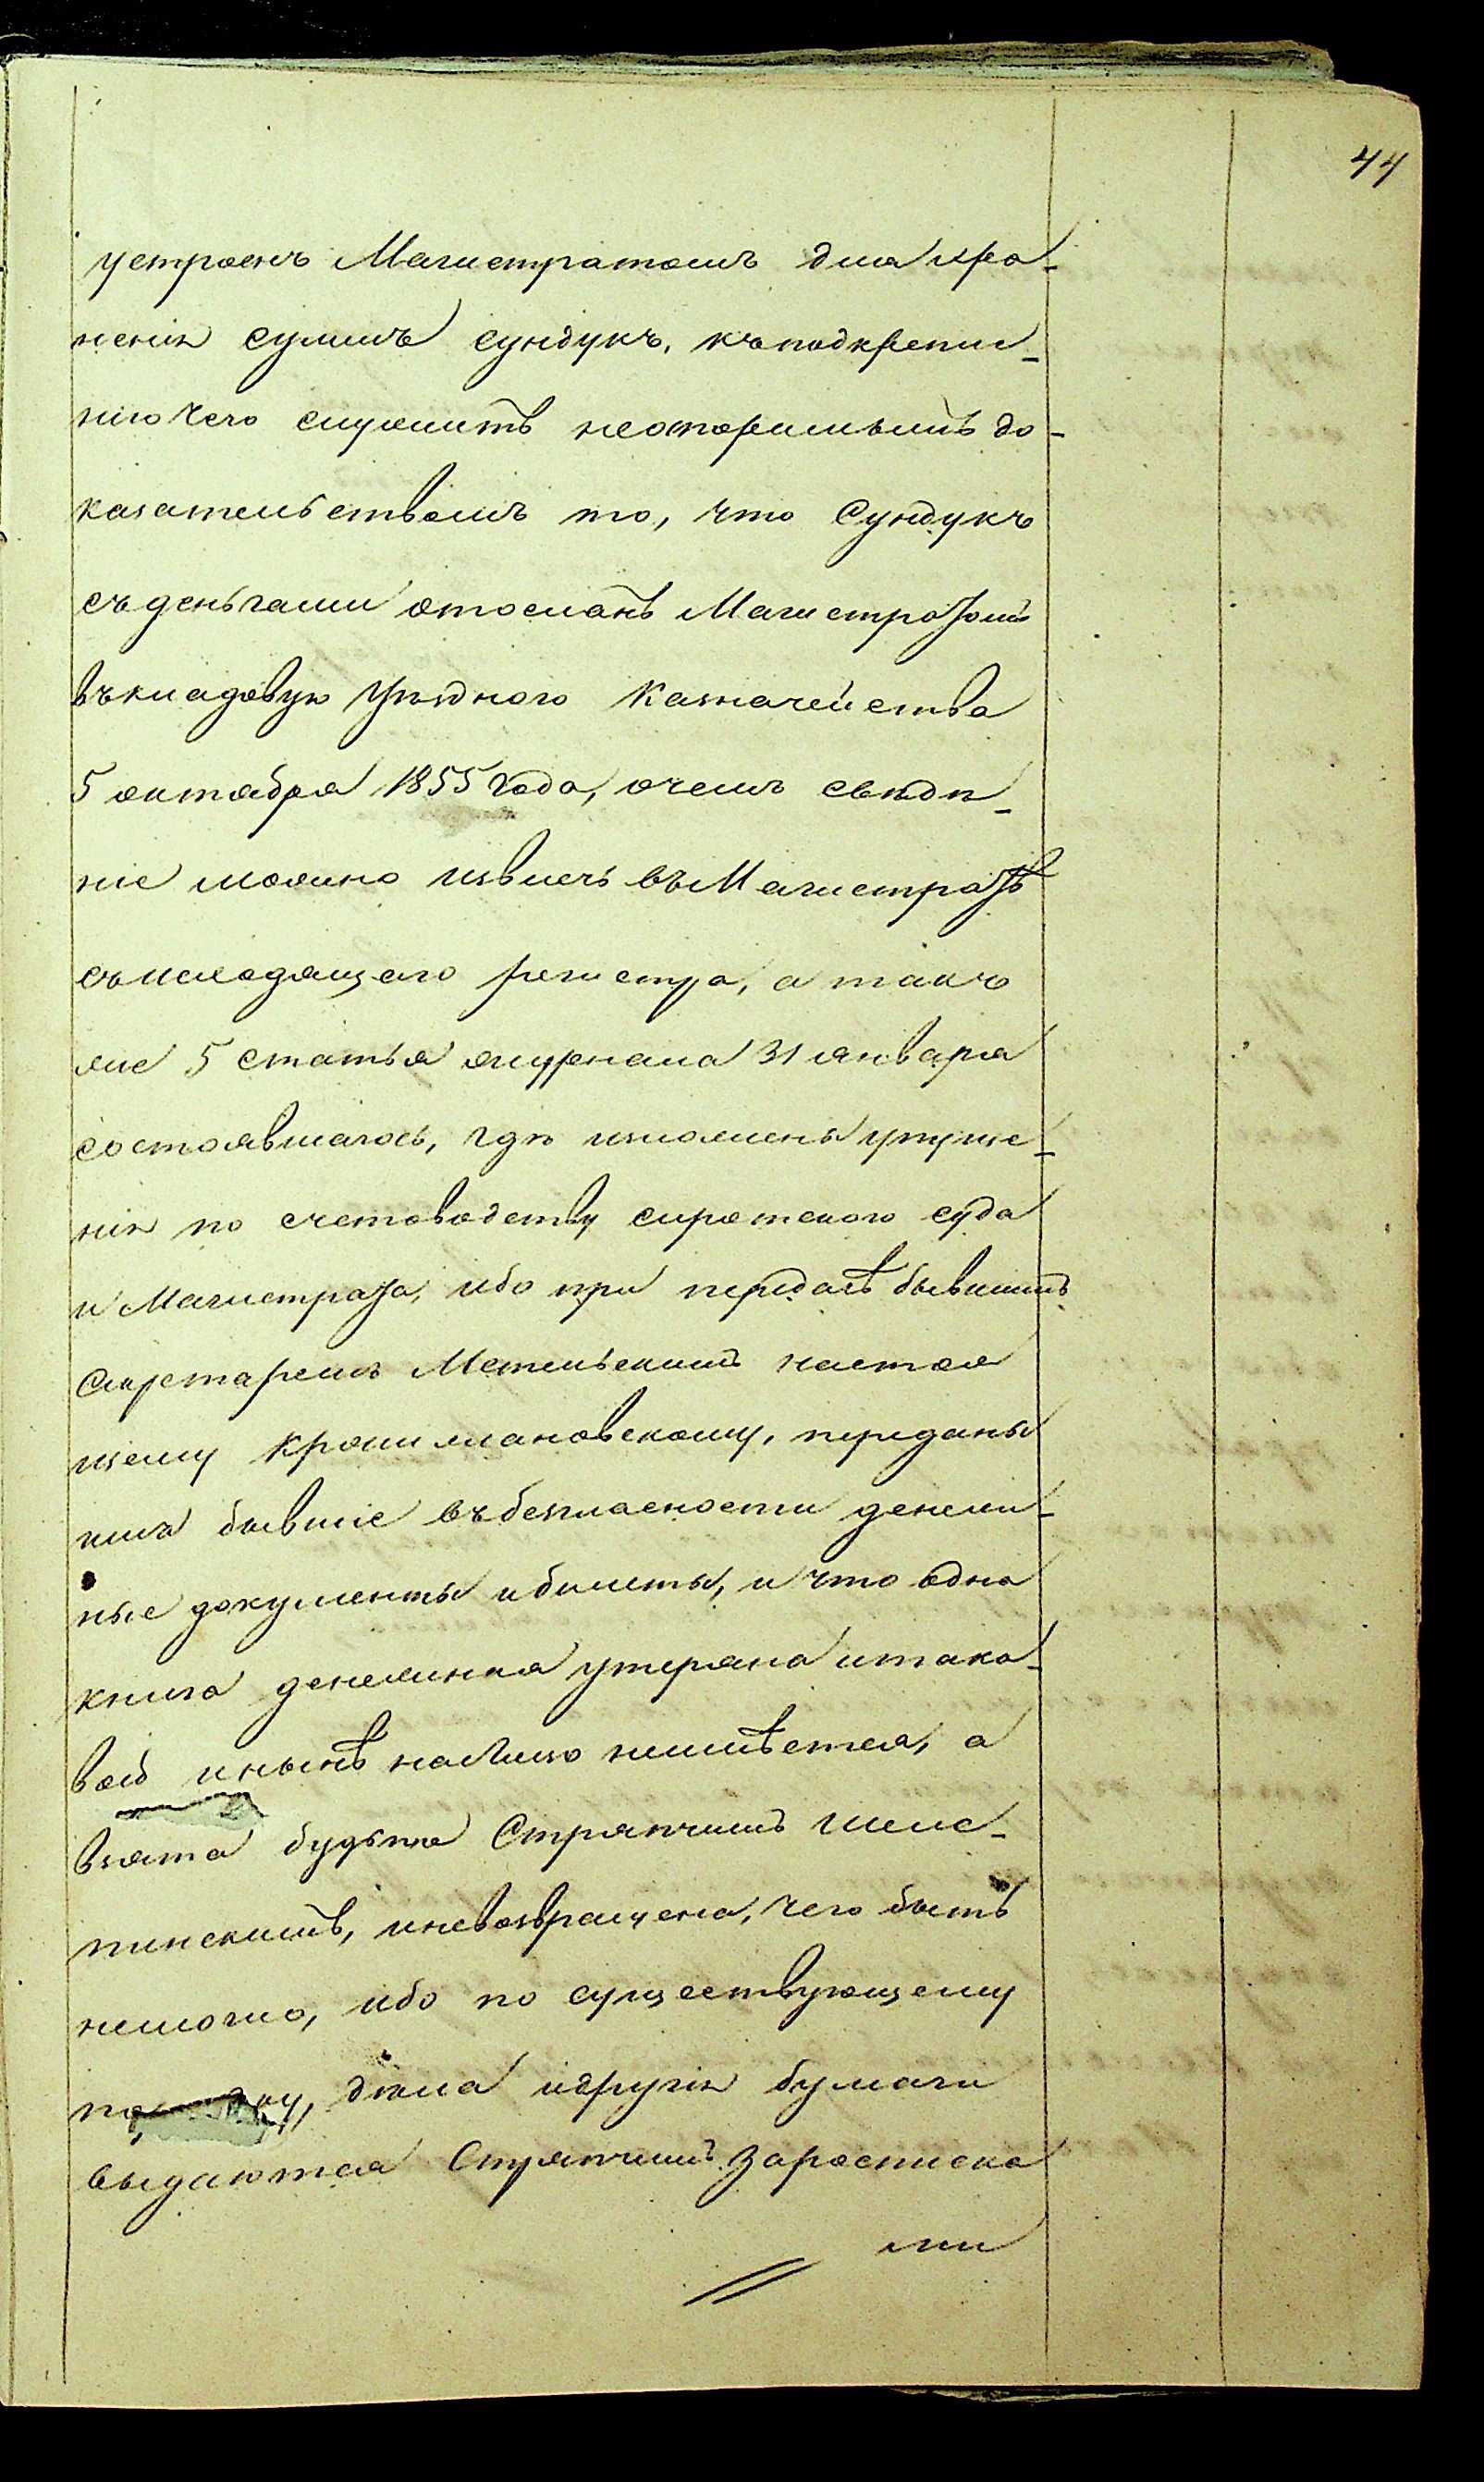 44
устроенъ Магистратомъ для хра-
ненія суммъ сундукъ, къ подкрепле-
нію чего служитъ неоторимымъ до-
казательствомъ то, что Сундукъ
съ деньгами отосланъ Магистратомъ
въ кладовую Уѣзднаго Казначейства
5 октября 1855 года, о чемъ свѣдѣ-
ніе можно извлечь въ Магистратѣ
съ исходящего регистра, а такъ
же 5 статья журнала 31 января
состоявшагось, гдѣ изложены упуще-
нія по счетоводству сиротского суда
и Магистрата, ибо при передачѣ бывшимъ
Секретаремъ Метельскимъ настоя
щему, переданы
имъ бывшіе въ безгласности денеж-
ные документы и билеты, и что одна
книга денежная утеряна и тако-
вой и нынѣ налицо неимѣется, а
взята будьто Стряпчимъ Шеле-
пинскимъ, и невозвращена, чего быть
немогло, ибо по существующему
дѣла и другія бумаги
выдаются Стряпчимъ за росписка
ми